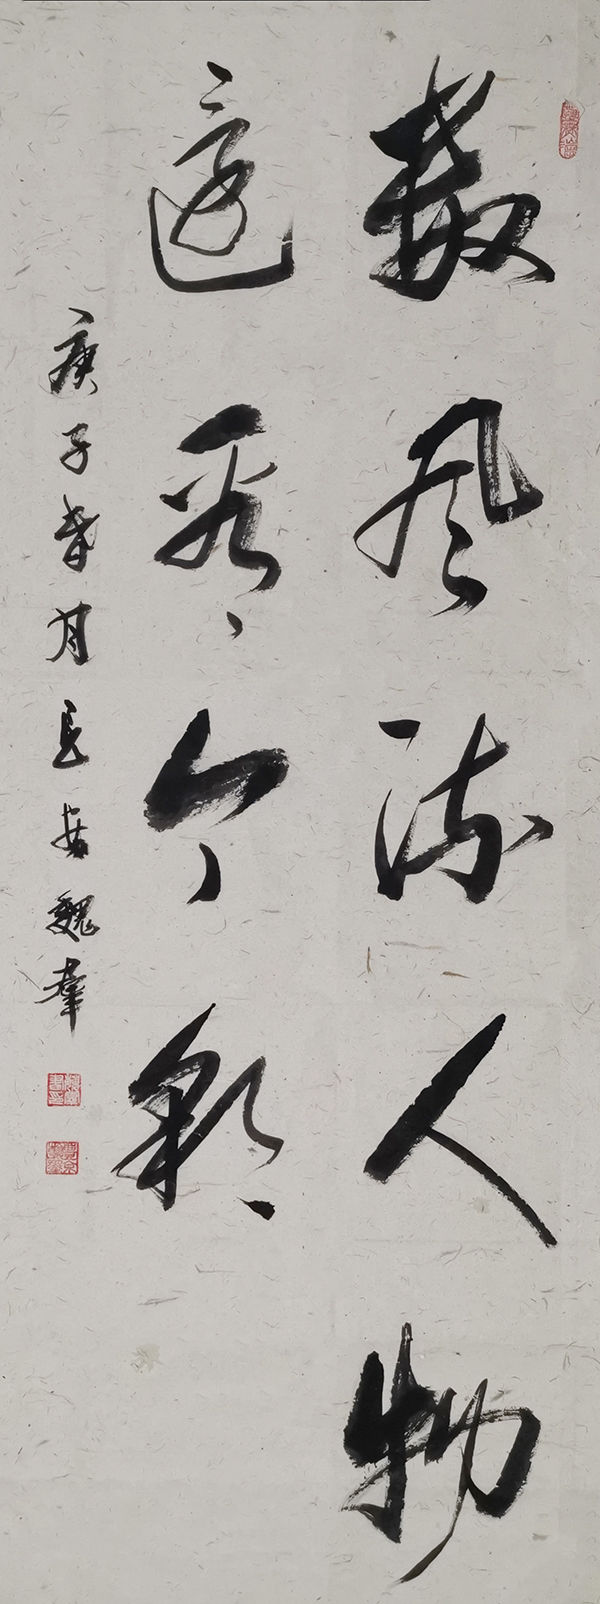 数风流人物
还看今朝
庚子春月长安魏群